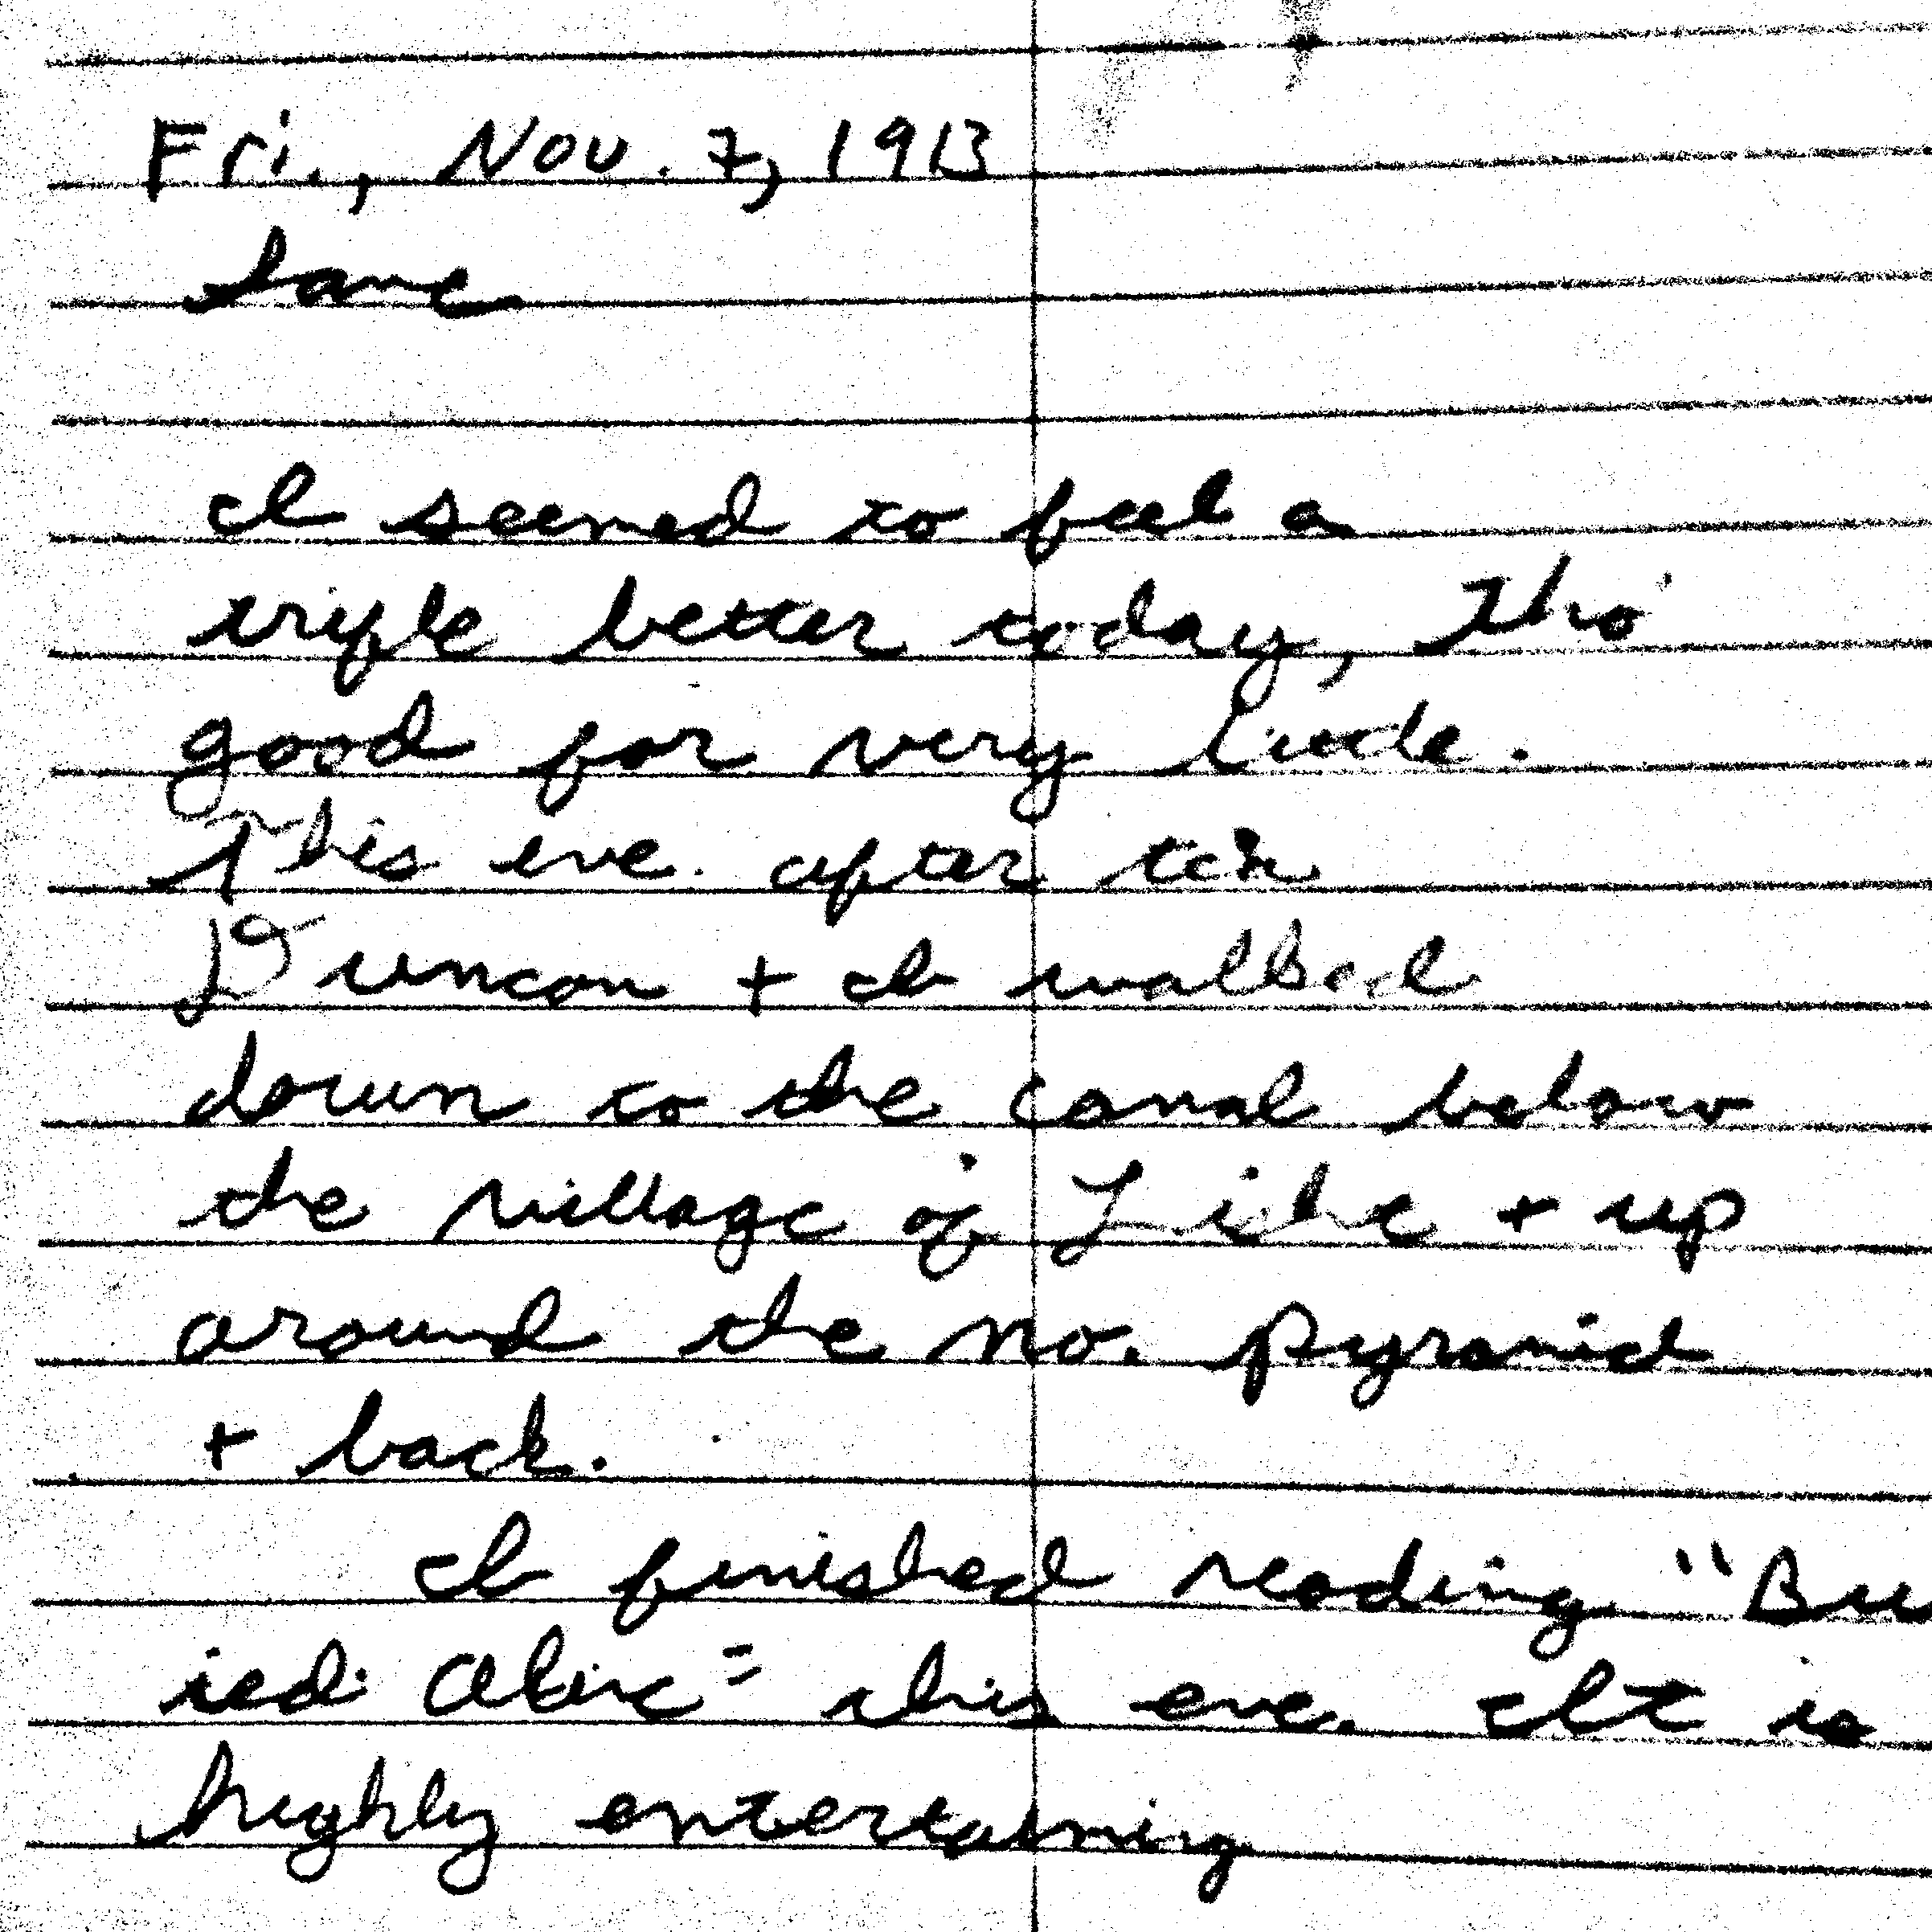 Fri., Nov. 7, 1913
Same
I seemed to feel a
trifle better today, tho
good for very little.
This eve. after tea
Duncan + I walked
down to the canal below
the village of Lisht + up
around the no. pyramid
+ back.
I finished reading "Bur
ied Alive" this eve. It is
highly entertaining